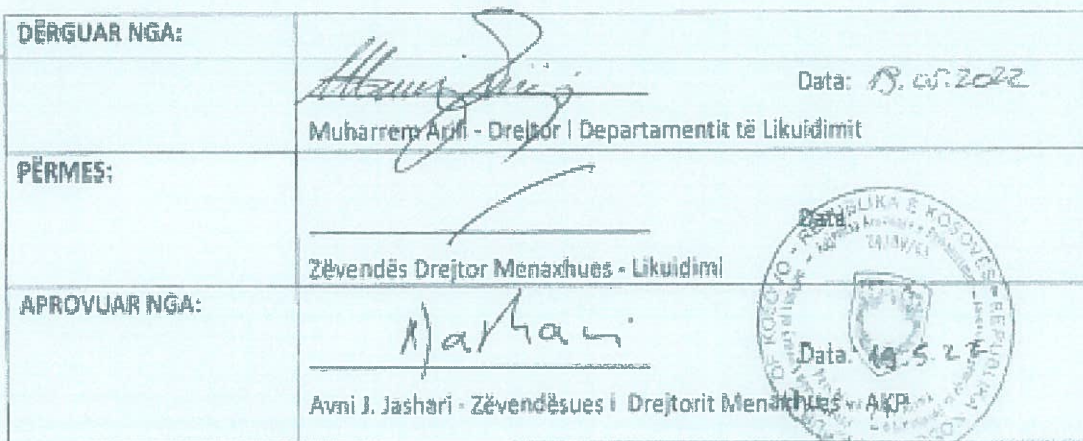 DËRGUAR NGA:
Data: 19.05.2022
Muharrem Arifi - Drejtor i Departamentit të Likuidimit
PËRMES:
Data:
Zëvendës Drejtor Menaxhues - Likuidimi
APROVUAR NGA:
Data: 19.5.22
Avni J. Jashari - Zëvendësues i Drejtorit Menaxhues - AKP
REPUBLIKA E KOSOVËS - REPUBLIKA
OF KOSOVO